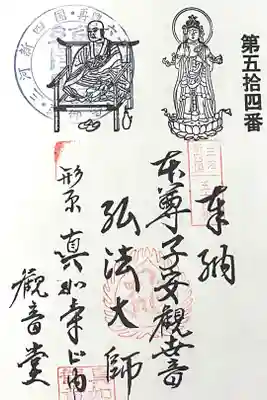 第五拾四番
奉納
本尊子安觀世音
弘法大師
形原 真如寺山内
觀音堂